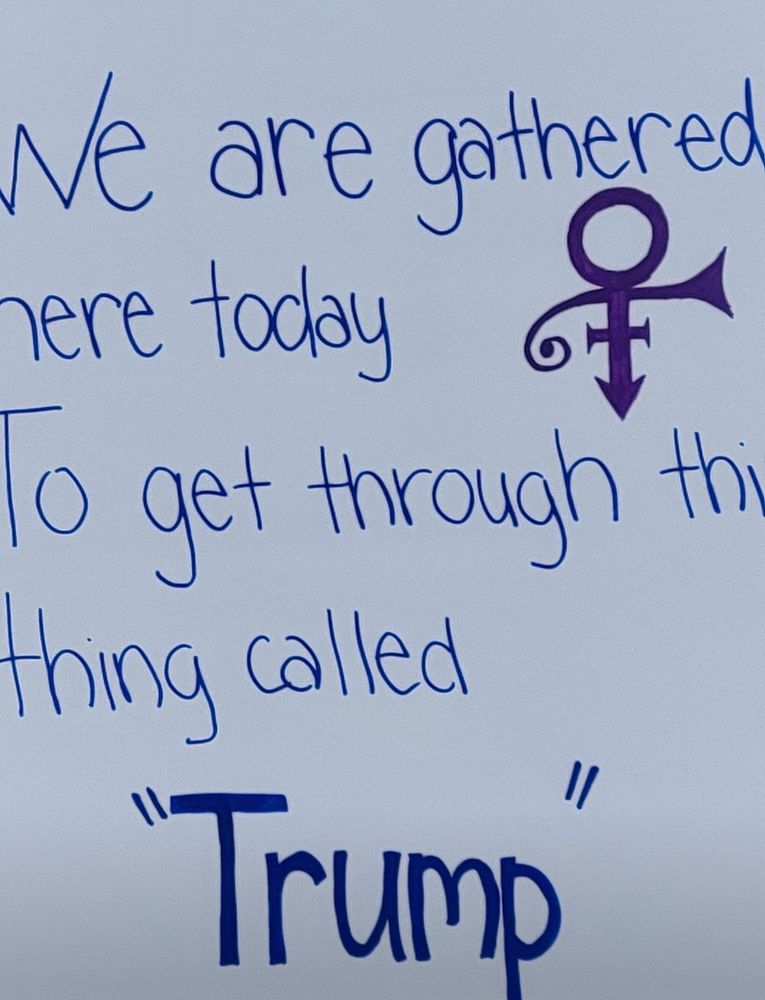 We are gathered
here today
To get through thi
thing called
"Trump"